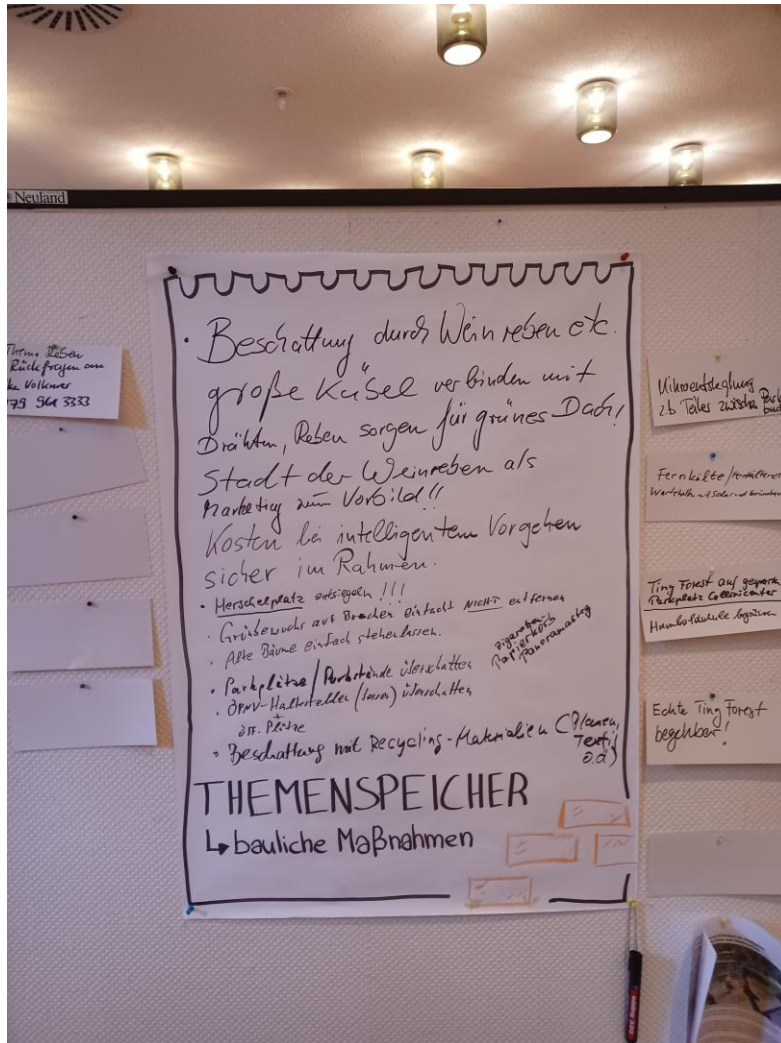 Neuland
Thema Reben
Rückfragen an
Volkmer
79 961 3333
· Beschattung durch Weinreben etc.
große Kübel verbinden mit
Drähten, Reben sorgen für grünes Dach!
Stadt der Weinreben als
Marketing zum Vorbild!!
Kosten bei intelligentem Vorgehen
sicher im Rahmen.
· Herschelplatz entsiegeln!!!
· Grünbewuchs auf Brachen einfach NICHT entfernen
· Alte Bäume einfach stehenlassen.
Zigaretten
Papierkorb
Panoramasteg
· Parkplätze/Parkstände überschatten
· ÖPNV-Haltestellen () überschatten
+
öff. Plätze
· Beschattung mit Recycling-Materialien (Planen,
Textil
o.ä)
THEMENSPEICHER
↳ bauliche Maßnahmen
zb zwischen
Fernkälte/
Tiny Forest auf
Parkplatz Collinicenter
Humboldschule begrünen
Echte Tiny Forest
begehbar!